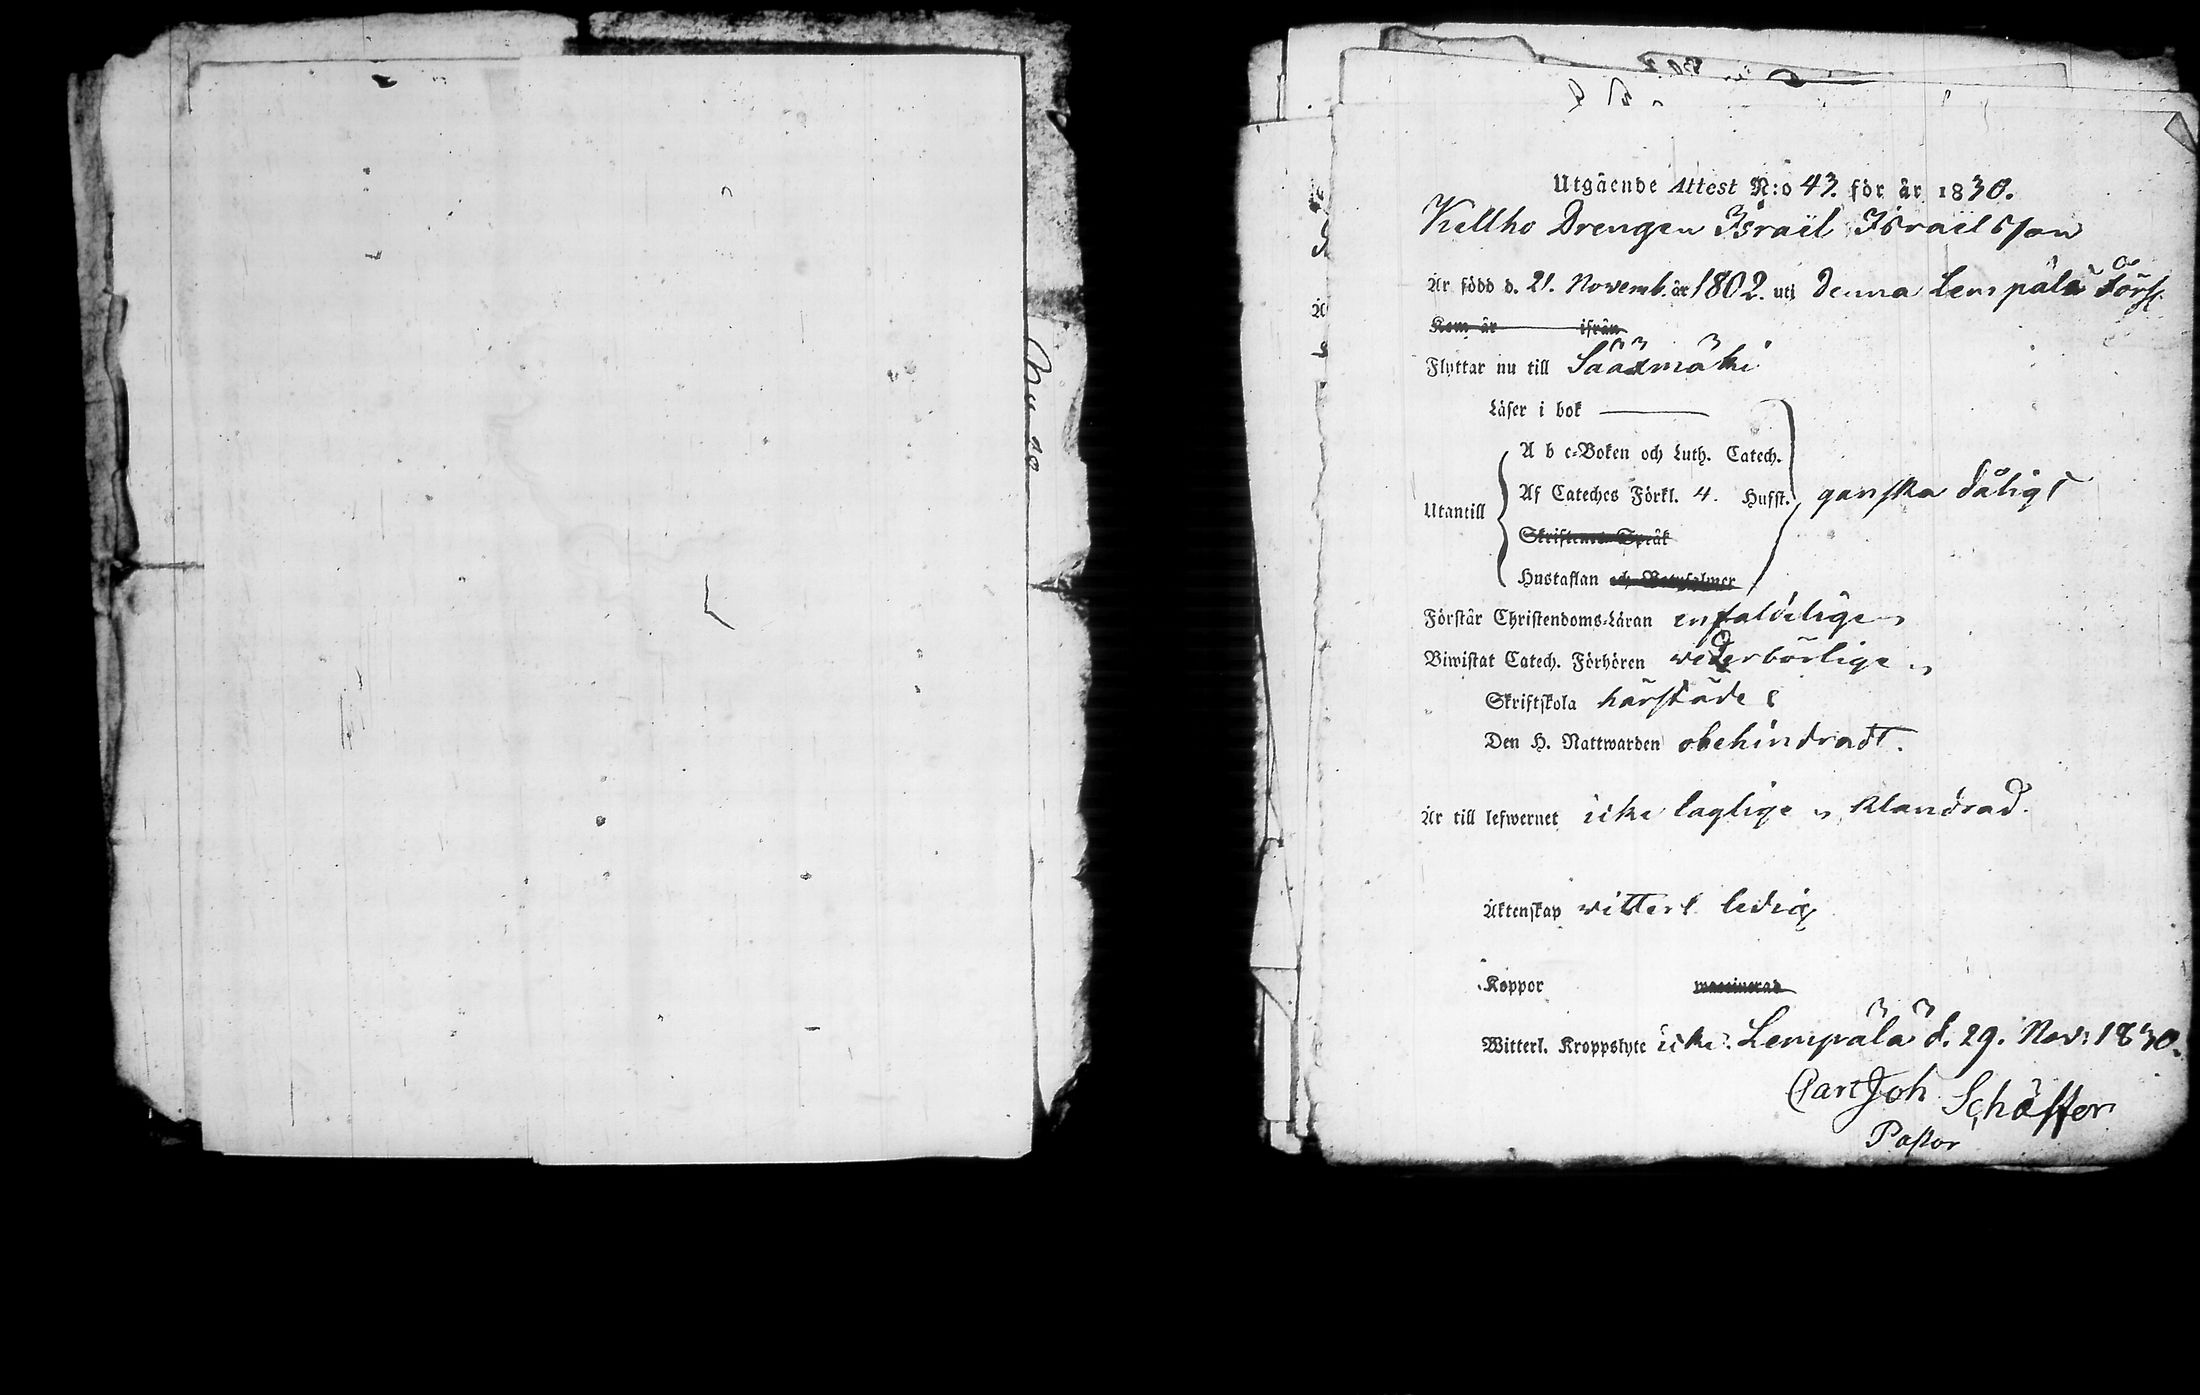 Utgående Attest N:o 43. för år 1830.
Kellho Drengen Israël Israëlsson
Är född d. 21. Novemb. år 1802. uti denna Lempälä Förs.
Kom år ifrån
Flyttar nu till Sääxmäki
Läser i bok
A b c-Boken och Luth. Catech.
Af Cateches Förkl. 4. Hufst. ganska dåligt
Utantill
Skriftenes Språk
Hustaflan och Botpsalmer
Förstår Christendoms-Läran enfaldeligen
Biwistat Catech. Förhören wederbörligen
Skriftskola härstädes
Den H. Nattwarden obehindradt.
Är till lefwernet icke lagligen klandrad.
Äktenskap witterl. ledig
Koppor vaccinerad
Witterl. Kroppslyte icke. Lempälä d. 29. Nov: 1830.
Carl Joh Schäffer
Pastor